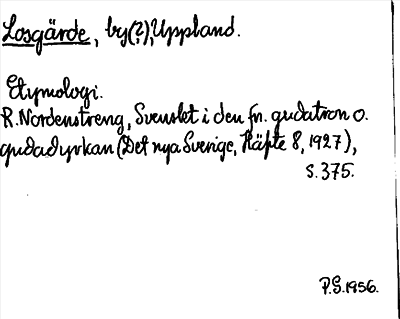 Losgärde, by(?), Uppland.
Etymologi.
R. Nordenstreng, Svenskt i den fn. gudatron o.
gudadyrkan (Det nya Sverige, Häfte 8, 1927),
s. 375.
P.S. 1956.